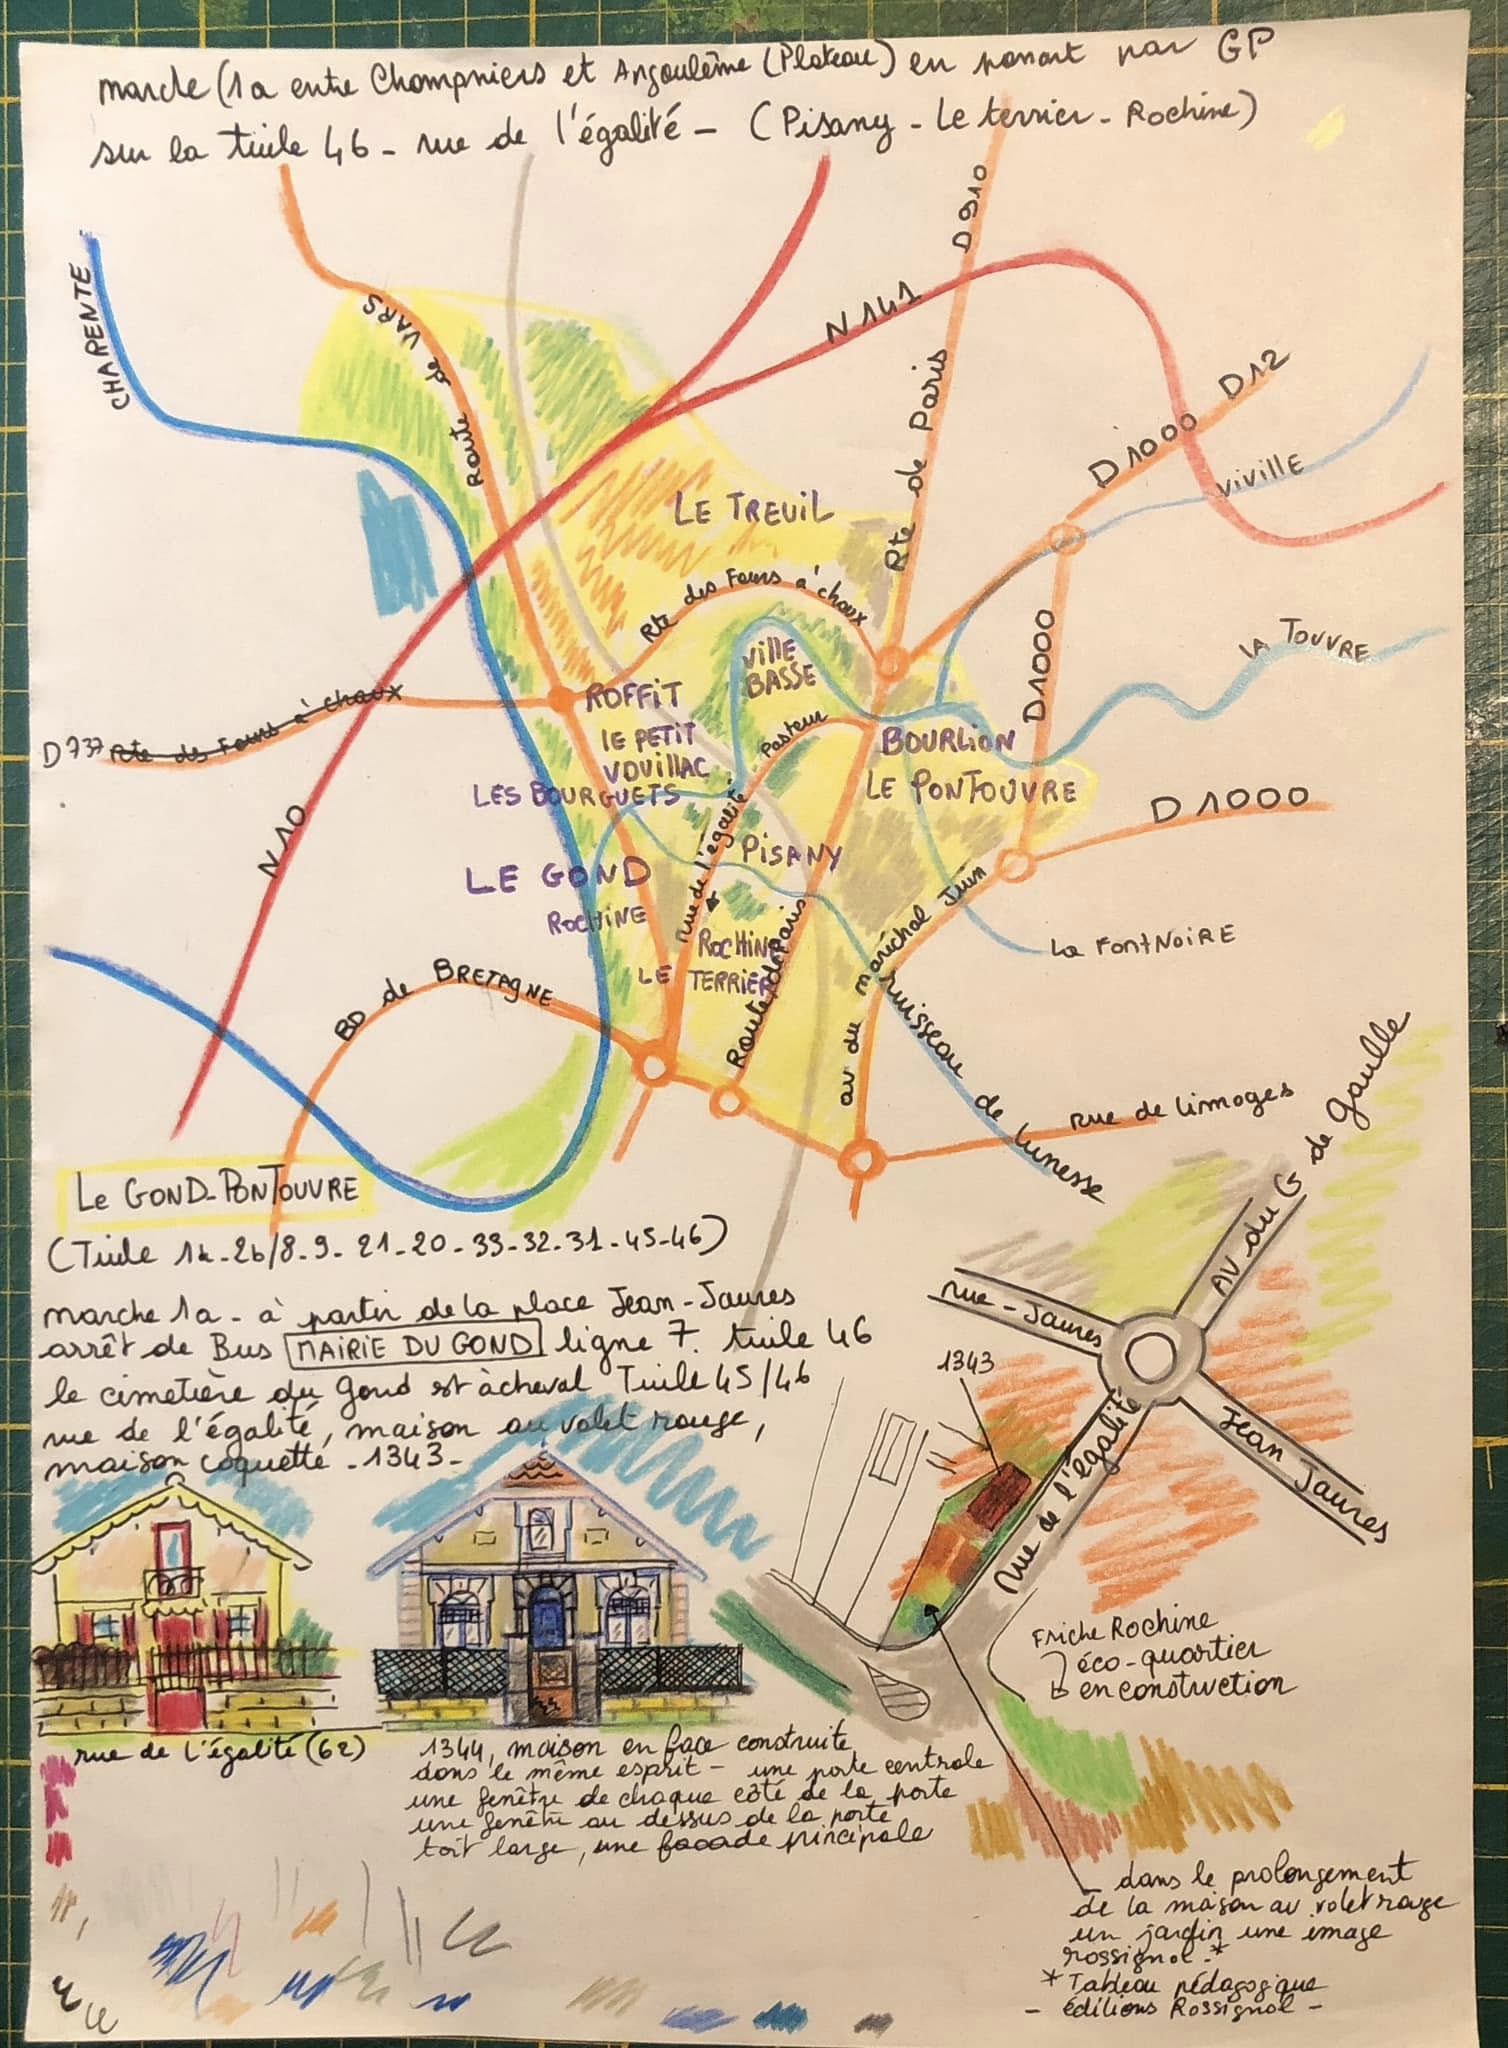 marche (1a entre Champniers et Angoulême (Plateau) en passant par GP
sur la tuile 46 - rue de l'égalité - (Pisany - Le terrier - Rochine)
CHARENTE
Route de VARS
N 141
D 910
Rte de Paris
D 12
D 1000
VIVILLE
LE TREUIL
Rte des Fours à chaux
VILLE
BASSE
LA TOUVRE
D 1000
D 737 Rte des Fours à chaux
ROFFIT
LE PETIT
VOUILLAC
Pasteur
BOURLION
LES BOURGUETS
LE PONTOUVRE
D 1000
N 10
rue de l'égalité
PISANY
LE GOND
ROCHINE
ROCHINE
LE TERRIER
Route de Paris
av du maréchal Juin
La FONTNOIRE
BD de BRETAGNE
ruisseau de Lunesse
rue de Limoges
LE GOND-PONTOUVRE
(Tuile 1a-2b/8-9-21-20-33-32-31-45-46)
marche 1a - à partir de la place Jean-Jaures
arrêt de Bus MAIRIE DU GOND ligne 7. tuile 46
le cimetière du Gond est àcheval Tuile 45/46
rue de l'égalité, maison au volet rouge,
maison coquette - 1343 -
AV du G de Gaulle
rue - Jaures
Jean Jaures
rue de l'égalité
1343
Friche Rochine
éco-quartier
en construction
rue de l'égalité (62)
1344, maison en face construite
dans le même esprit - une porte centrale
une fenêtre de chaque côté de la porte
une fenêtre au dessus de la porte
toit large, une facade principale
- dans le prolongement
de la maison au volet rouge
un jardin une image
rossignol - *
* Tableau pédagogique
- éditions Rossignol -